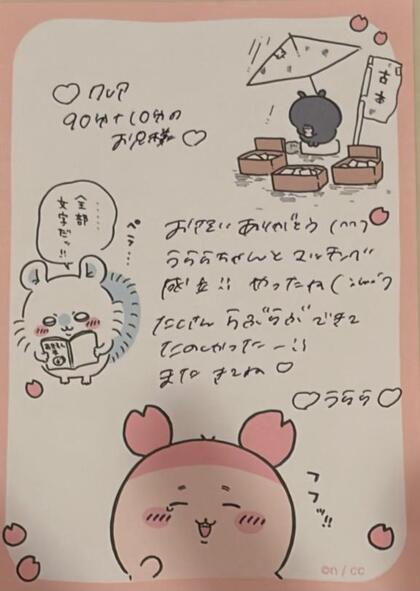 ♡ クレア
90分+10分の
お兄様 ♡
古本
!
……
全部
文字だッ!!
ペラ…
お兄い ありがとう (^^)
うららちゃんと マッチング
成立!! やったね
たくさん らぶらぶできて
たのしかったー!!
また きてね ♡
♡うらら♡
フフッ!!
©n / cc